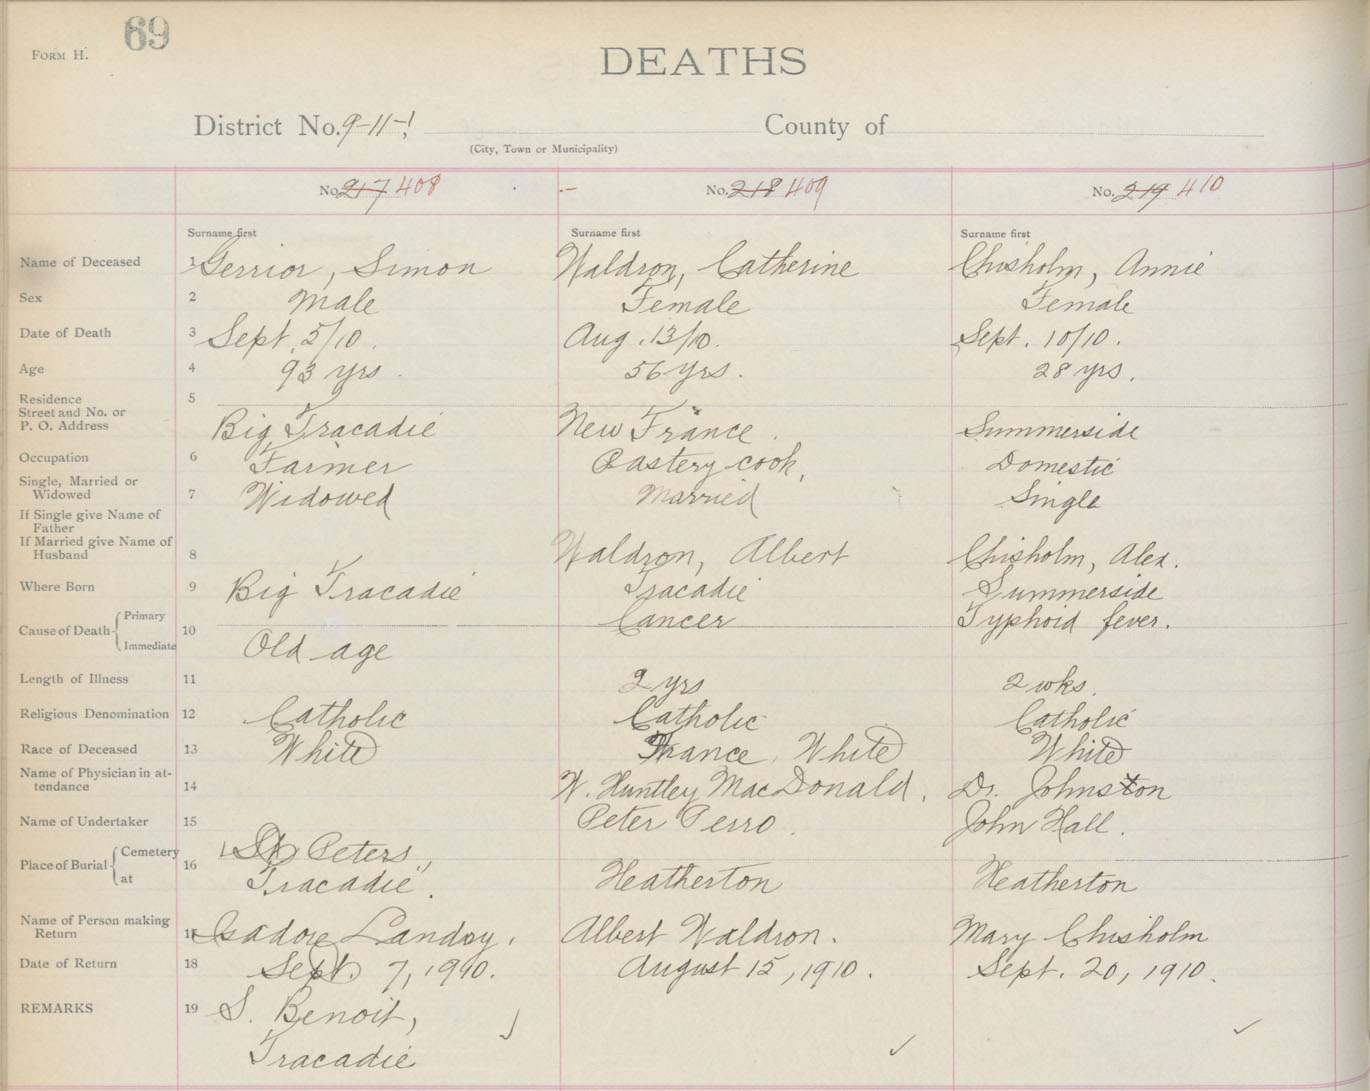 69
FORM H.
DEATHS
District No. 9-11-! County of
(City, Town or Municipality)
No. 217 408 No. 218 409 No. 219 410
Surname first Surname first Surname first
Name of Deceased 1 Gerrior, Simon Waldron, Catherine Chisholm, Annie
Sex 2 Male Female Female
Date of Death 3 Sept. 5/10. Aug. 13/10. Sept. 10/10.
Age 4 93 yrs. 56 yrs. 28 yrs.
Residence 5
Street and No. or
P. O. Address Big Tracadie New France. Summerside
Occupation 6 Farmer Pastery cook, Domestic
Single, Married or
Widowed 7 Widowed Married Single
If Single give Name of
Father
If Married give Name of
Husband 8 Waldron, Albert Chisholm, Alex.
Where Born 9 Big Tracadie Tracadie Summerside
Cause of Death Primary 10 Cancer Typhoid fever.
Immediate Old age
Length of Illness 11 2 yrs 2 wks.
Religious Denomination 12 Catholic Catholic Catholic
Race of Deceased 13 White France, White White
Name of Physician in at-
tendance 14 W. Huntley MacDonald. Dr. Johnston
Name of Undertaker 15 Peter Perro. John Hall.
Place of Burial Cemetery 16 St. Peters,
at Tracadie. Heatherton Heatherton
Name of Person making
Return 17 Isadore Landry. Albert Waldron. Mary Chisholm
Date of Return 18 Sept. 7, 1910. August 15, 1910. Sept. 20, 1910.
REMARKS 19 S. Benoit,
Tracadie